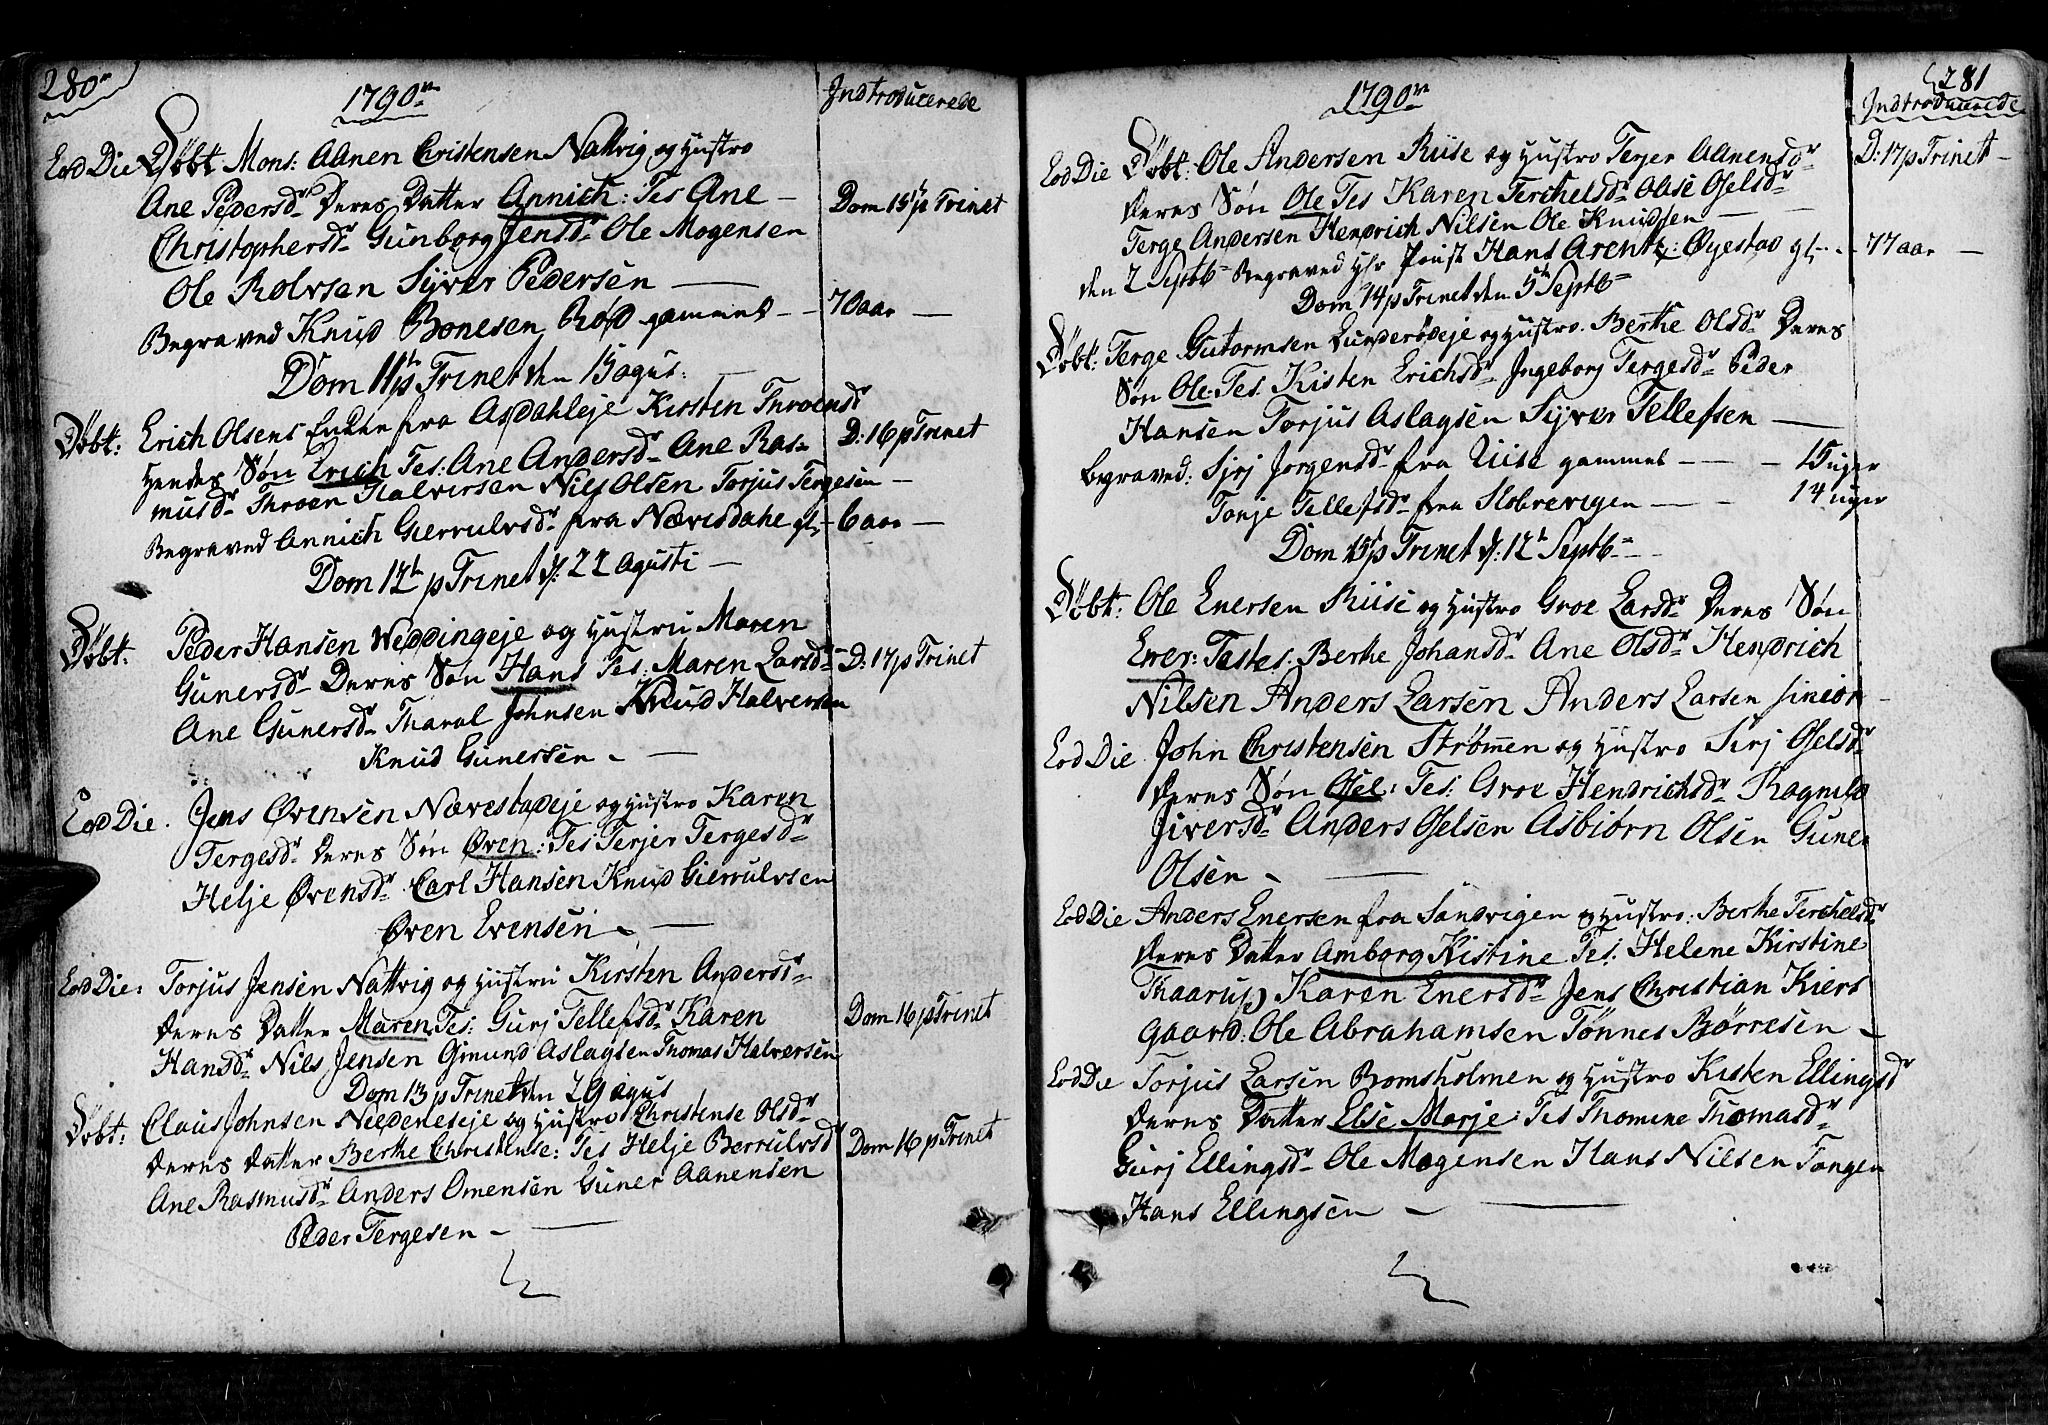 280
1790
Indtroducerede
Eod Die Døbt Mons: Aanen Christensen Nattvig og Hustro
Ane Pedersd. Deres Datter Annich: Tes Ane — Dom 15 p Trinet
Christophersd. Gunborg Jensd. Ole Mogensen
Ole Rolvsen Syver Pedersen —
Begraved Knud Bonesen Rød gammel - - 70 aar —
Dom 11 p Trinet den 15 Agus:
Døbt: Erich Olsens Encke fra Asdahleje Kirsten Throensd
Hendes Søn Erich Tes: Ane Andersd. Ane Ras- D: 16 p Trinet
musd. Throen Halversen Nils Olsen Torjus Tergesen —
Begraved Annich Gierrulvsd. fra Nævesdahl gl - 6 aar —
Dom 12 p Trinet d: 22 Agusti —
Døbt: Peder Hansen Weddingeje og Hustru Maren
Gunersd. Deres Søn Hans Tes: Maren Larsd. D: 17 p Trinet
Ane Gunersd. Tharal Johnsen Knud Halversen
Knud Gunersen —
Eod Die. Jens Øvensen Nævestadeje og Hustro Karen
Tergesd. Deres Søn Øven: Tes Terjer Tergesd.
Helje Øvensd. Carl Hansen Knud Gierrulvsen
Øven Evensen —
Eod Die: Torjus Jensen Nattvig og Hustru Kirsten Andersd.
Deres Datter Maren Tes: Gurj Tellefsd. Karen Dom 16 p Trinet
Hansd. Nils Jensen Gimund Aslagsen Thomas Halversen
Dom 13 p Trinet den 29 Agus
Døbt: Claus Johnsen Nedeneseje og Hustro Christense Olsd.
Deres Datter Berthe Christense: Tes Helje Berrulvsd Dom 16 p Trinet
Ane Rasmusd. Anders Omensen Guner Aanensen
Peder Tergesen —
281
1790
Indtroducerede
Eod Die Døbt: Ole Andersen Riise og Hustro Terjer Aanensd. D: 17 p Trinet —
Deres Søn Ole Tes Karen Terchelsd. Olise Oselsd.
Terge Andersen Hendrich Nilsen Ole Knudsen — —
den 2 Septb Begraved Hr Provst Hans Arentz: Øyestad gl - - 77 aar —
Dom 14 p Trinet den 5 Septb
Døbt: Terge Gutormsen Lunderødeje og Hustro. Berthe Olsd. Deres
Søn Ole Tes. Kisten Erichsd. Ingeborj Tergesd. Peder
Hansen Torjus Aslagsen Syver Tellefsen —
Begraved: Sjrj Jorgensd. fra Riise gammel - - - 15 uger
Tonje Tellefsd. fra Slobrevigen — - 14 uger
Dom 15 p Trinet d: 12 Septb —
Døbt: Ole Enersen Riise og Hustro Groe Larsd. Deres Søn
Ener: Testes: Berthe Johansd. Ane Olsd. Hendrich
Nilsen Anders Larsen Anders Larsen sinior
Eod Die. John Christensen Strømen og Hustro Sirj Oselsd.
Deres Søn Osel: Tes: Groe Hendrichsd. Ragnild
Siversd. Anders Oselsen Asbiørn Olsen Guner
Olsen —
Eod Die Anders Enersen fra Sandvigen og Hustro: Berthe Terchelsd.
Deres Datter Amborg Kistine Tes: Helene Kirstine
Thaarup Karen Enersd. Jens Christian Kiers
gaard: Ole Abrahamsen Tønnes Børresen —
Eod Die Torjus Larsen Bomsholmen og Hustro Kisten Ellingsd.
Deres Datter Else Marje: Tes Thomine Thomasd.
Gurj Ellingsd. Ole Mogensen Hans Nilsen Tangen
Hans Ellingsen —